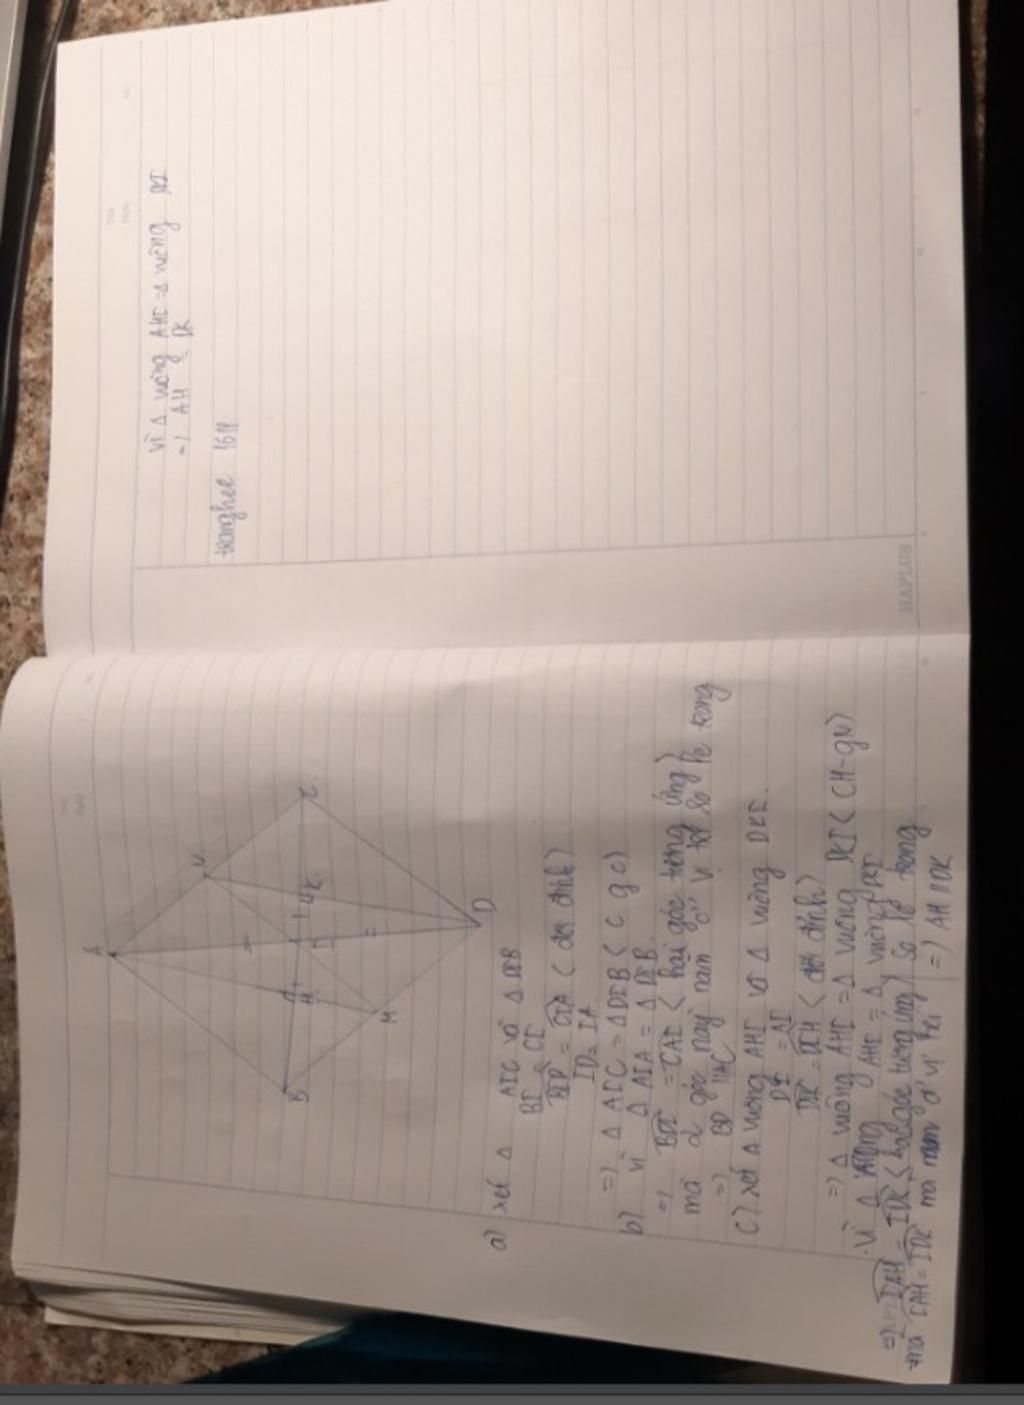 A
B
C
D
M
N
H
I
K
a) xét Δ AIC và Δ DIB
BI = CI
BID = CIA (đối đỉnh)
ID = IA
=) Δ AIC = Δ DIB (c g c)
b) Vì Δ AIA = Δ DIB
=) BDI = CAI (hai góc tương ứng)
mà 2 góc này nằm ở vị trí so le trong
=) BD // AC
c) xét Δ vuông AHI và Δ vuông DKI.
DI = AI
(đối đỉnh)
=) Δ vuông AHI = Δ vuông DKI (CH-GN)
Vì Δ vuông AHI = Δ vuông DKI
=) IAH = IDK (hai góc tương ứng)
mà IAH = IDK mà nằm ở vị trí so le trong
=) AH // DK
Vì Δ vuông AHI = Δ vuông DKI
=) AH = DK
tranghee 1611
HAPLUS